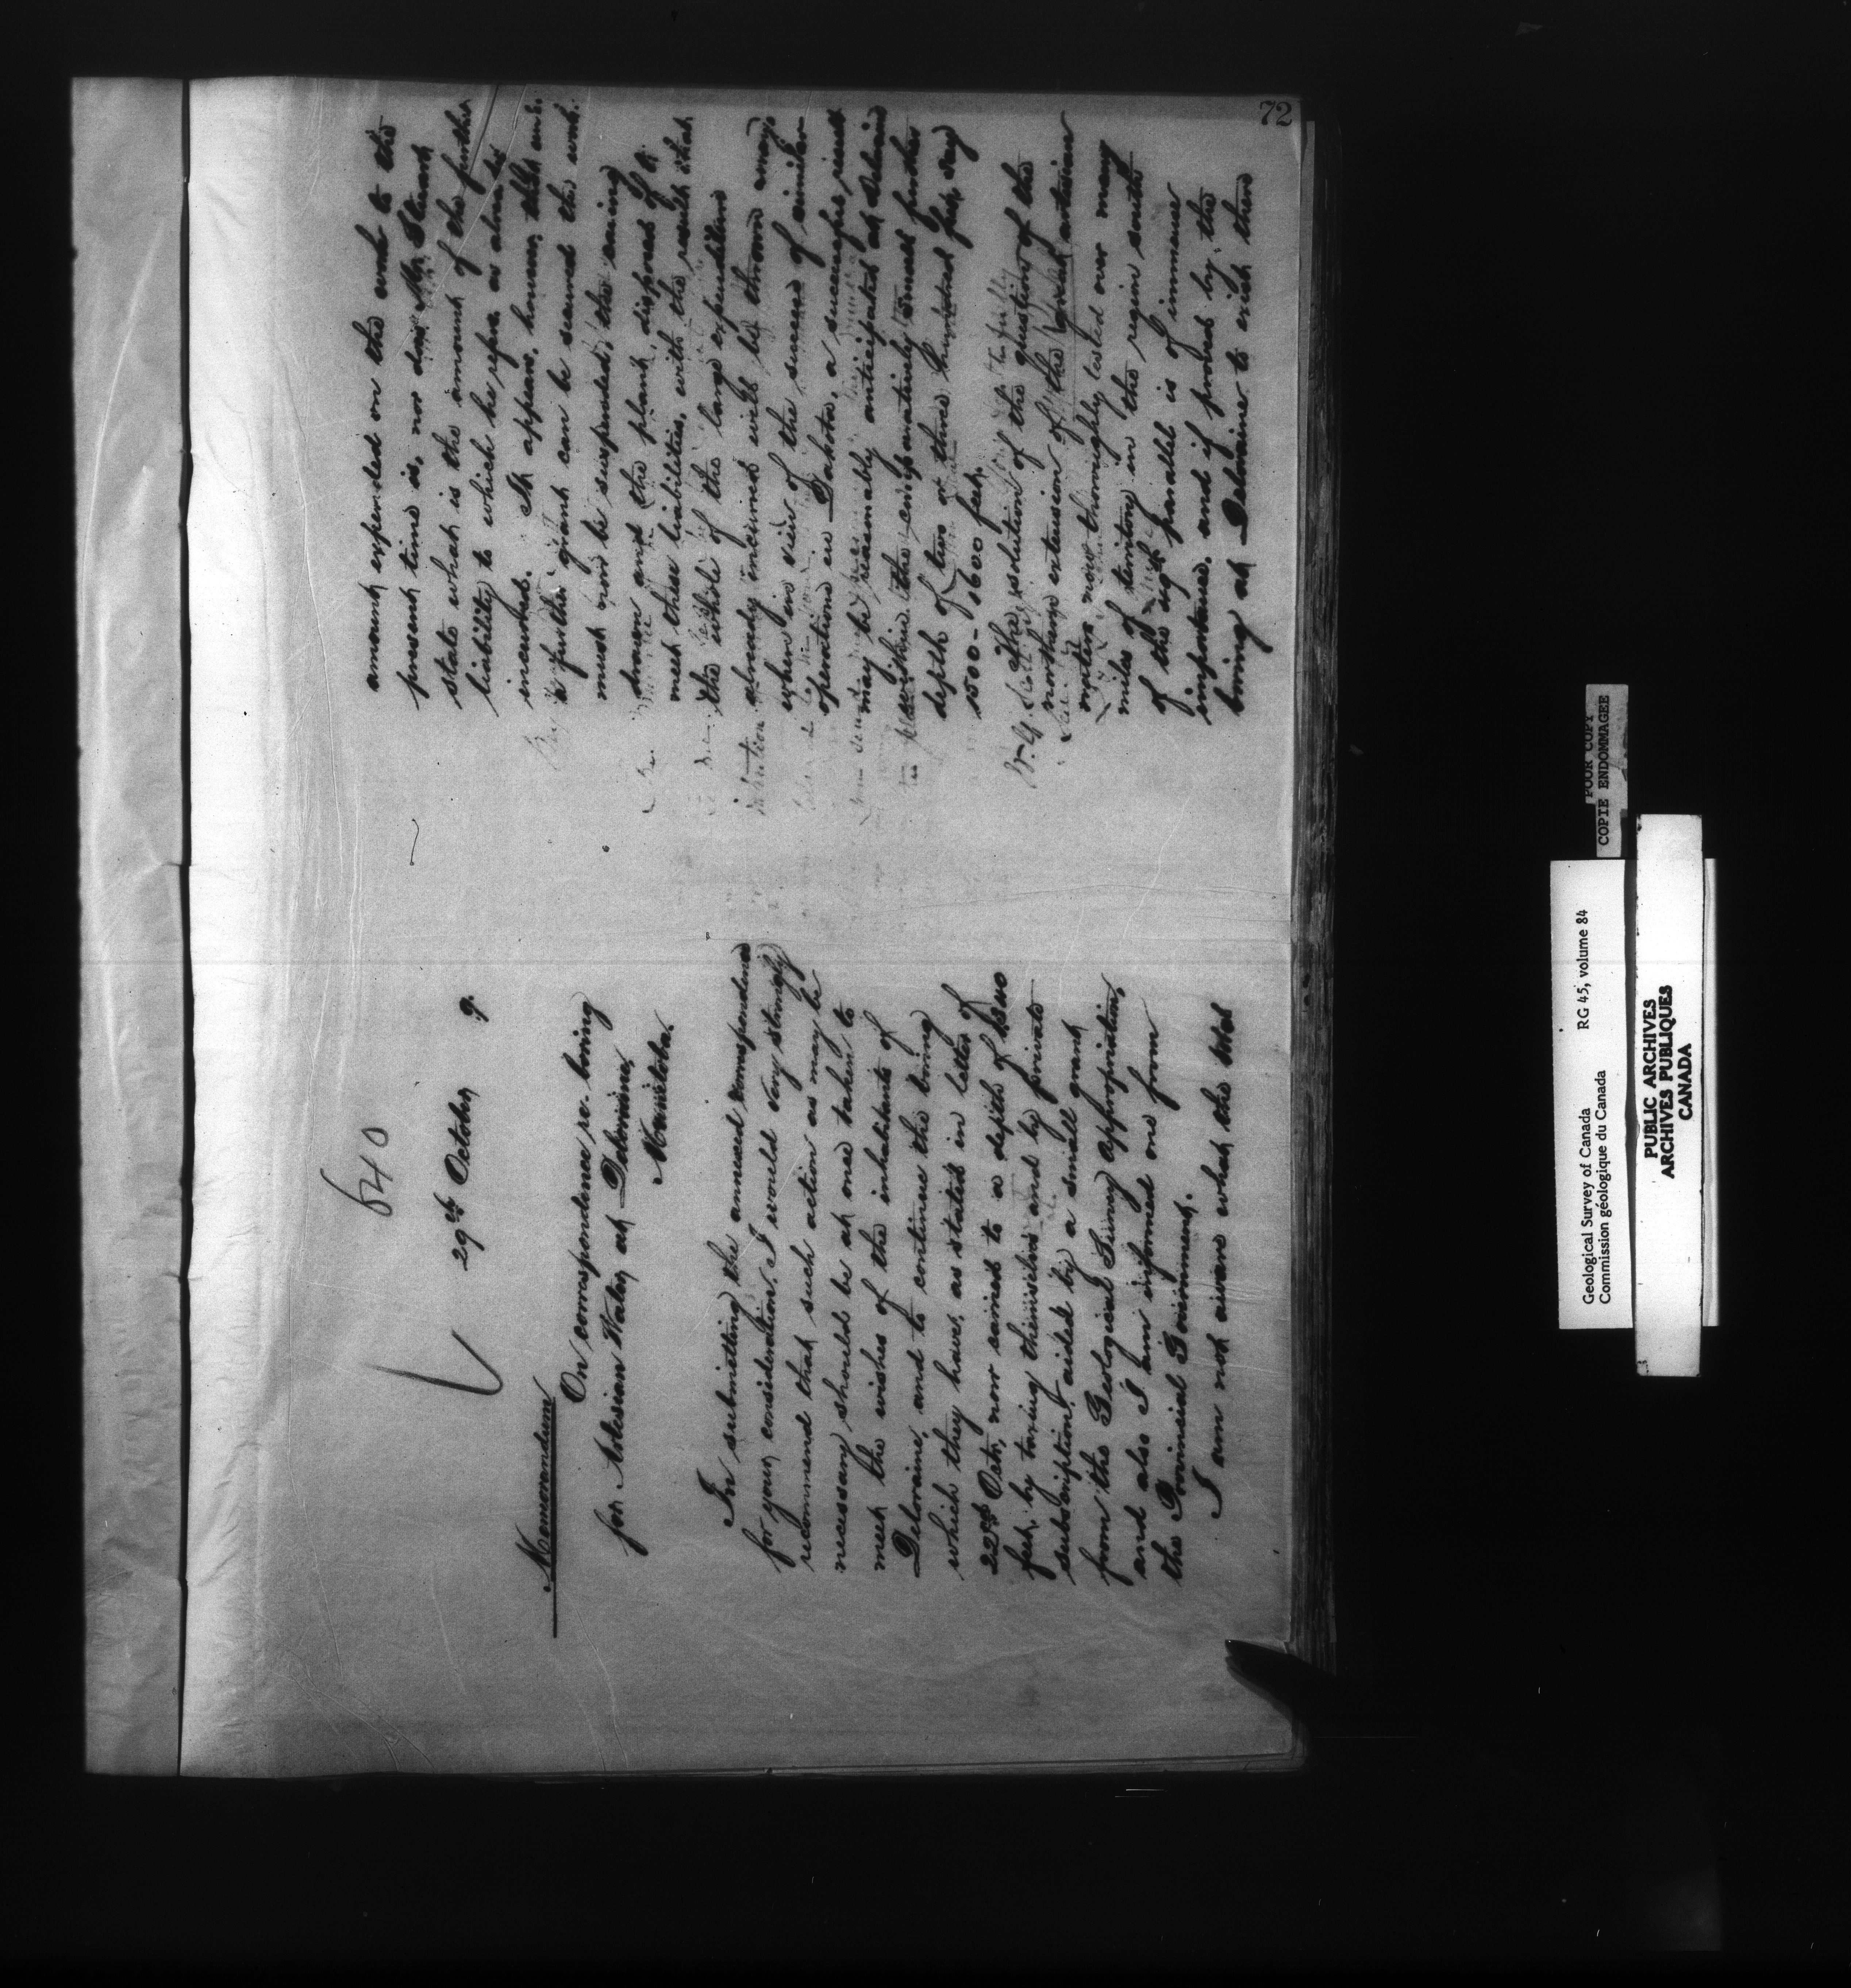 640
29th October 9.
Memorandum
On correspondence re. boring
for Artesian Water at Deloraine,
Manitoba.
In submitting the annexed correspondence
for your consideration, I would very strongly
recommend that such action as may be
necessary should be at once taken to
meet the wishes of the inhabitants of
Deloraine, and to continue the boring
which they have, as stated in letter of
22nd Octr, now carried to a depth of
feet, by taxing themselves and by private
subscription, aided by a small grant
from the Geological Survey appropriation,
and also I am informed one from
the Provincial Government.
I am not aware what the total
72
amount expended on the work to the
present time is, nor does Mr
state what is the amount of the further
liability to which he refers as already
incurred. It appears, however, that unless
a further grant can be secured the work
must now be suspended, the casing
drawn and the plant disposed of to
meet these liabilities, with the result that
the whole of the large expenditure
already incurred will be thrown away,
when in view of the success of similar
operations in Dakota, a successful result
may be reasonably anticipated at Deloraine
within the comparatively small further
depth of two or three hundred feet, say
1500-1600 feet.
The solution of the question of the
northern extension of the artesian
waters now thoroughly tested over many
miles of territory in the region south
of the 49th parallel is of immense
importance, and if proved by the
boring at Deloraine to exist there
Geological Survey of Canada RG 45, volume 84
Commission géologique du Canada
POOR COPY
COPIE ENDOMMAGEE
PUBLIC ARCHIVES
ARCHIVES PUBLIQUES
CANADA